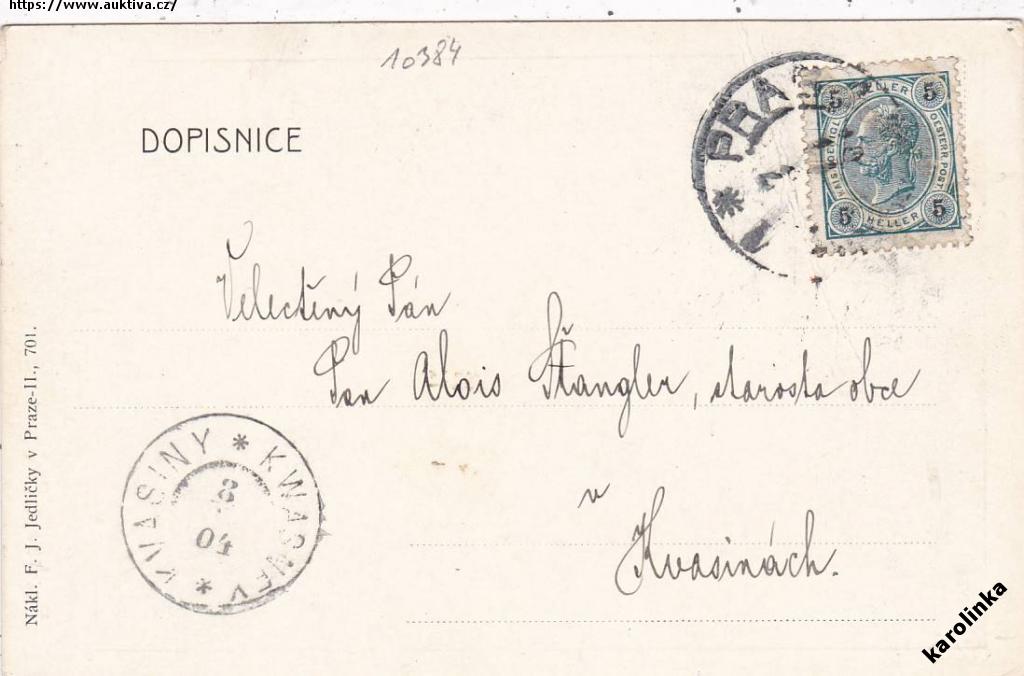 https://www.auktiva.cz/
10384
DOPISNICE
PRA
5 HELLER 5
KAIS. KOENIGL. OESTERR. POST
5 HELLER 5
Velectěný Pán
Pan Alois Štangler, starosta obce
v
Kvasinách.
KVASINY * KWASNEY *
04
Nákl. F. J. Jedličky v Praze-II., 701.
karolinka